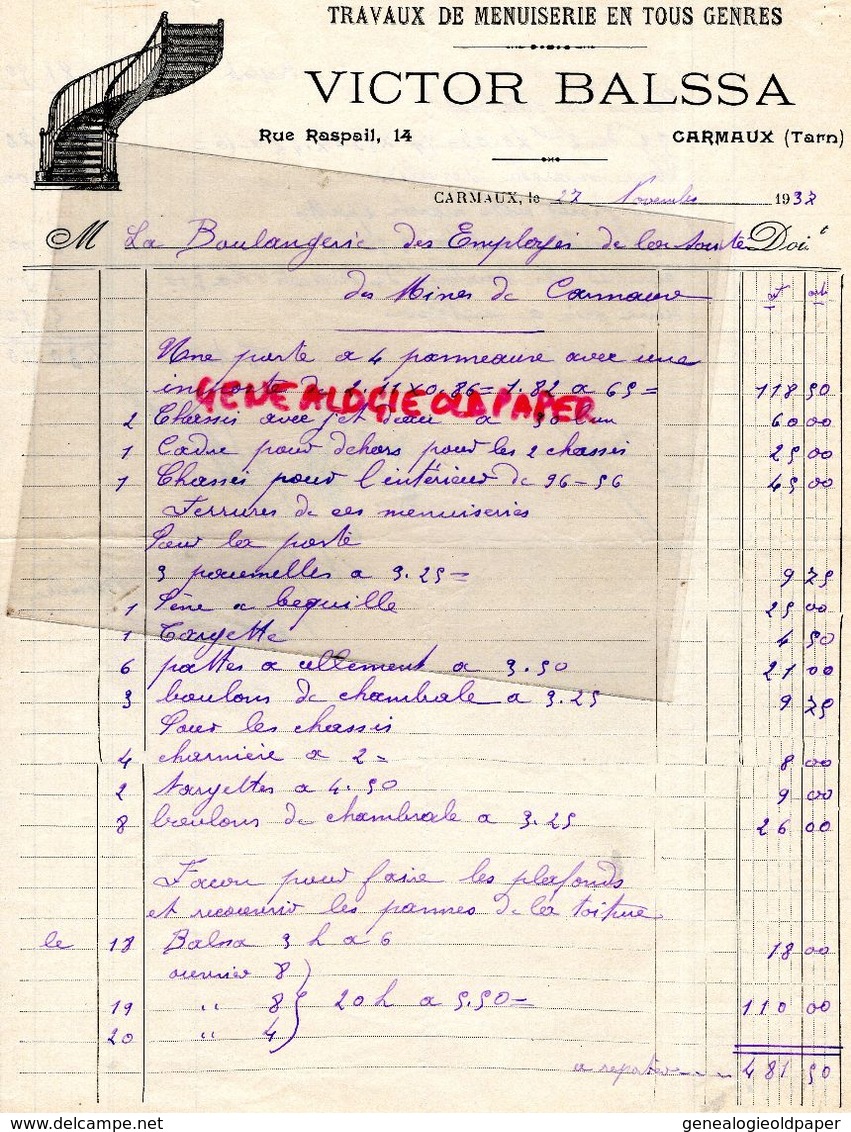 TRAVAUX DE MENUISERIE EN TOUS GENRES
VICTOR BALSSA
Rue Raspail, 14 CARMAUX (Tarn)
CARMAUX, le 27 Novembre 1937
M La Boulangerie des Employés de la Doit
des Mines de Carmaux f cts
Une porte a 4 panneaux avec une
imposte de 2.11 x 0.86 = 1.82 a 65 = 118 50
GENEALOGIE OLD PAPER
2 Chassis avec jet deau a 30 l'un 60 00
1 Cadre pour dehors pour les 2 chassis 25 00
1 Chassis pour l'intérieur de 96 - 56 45 00
Ferrures de ces menuiseries
Pour la porte
3 poumelles a 3.25 = 9 75
1 Pêne a bequille 25 00
1 Targette 4 50
6 pattes a cellement a 3.50 21 00
3 boulons de chambrale a 3.25 9 75
Pour les chassis
4 charnière a 2 = 8 00
2 targettes a 4.50 9 00
8 boulons de chambrale a 3.25 26 00
Facon pour faire les plafonds
et recouvrir les pannes de la toiture
le 18 Balssa 3 h a 6 18 00
ouvrier 8
19 " 8 20 h a 5.50 = 110 00
20 " 4
a reporter 481 50
genealogieoldpaper